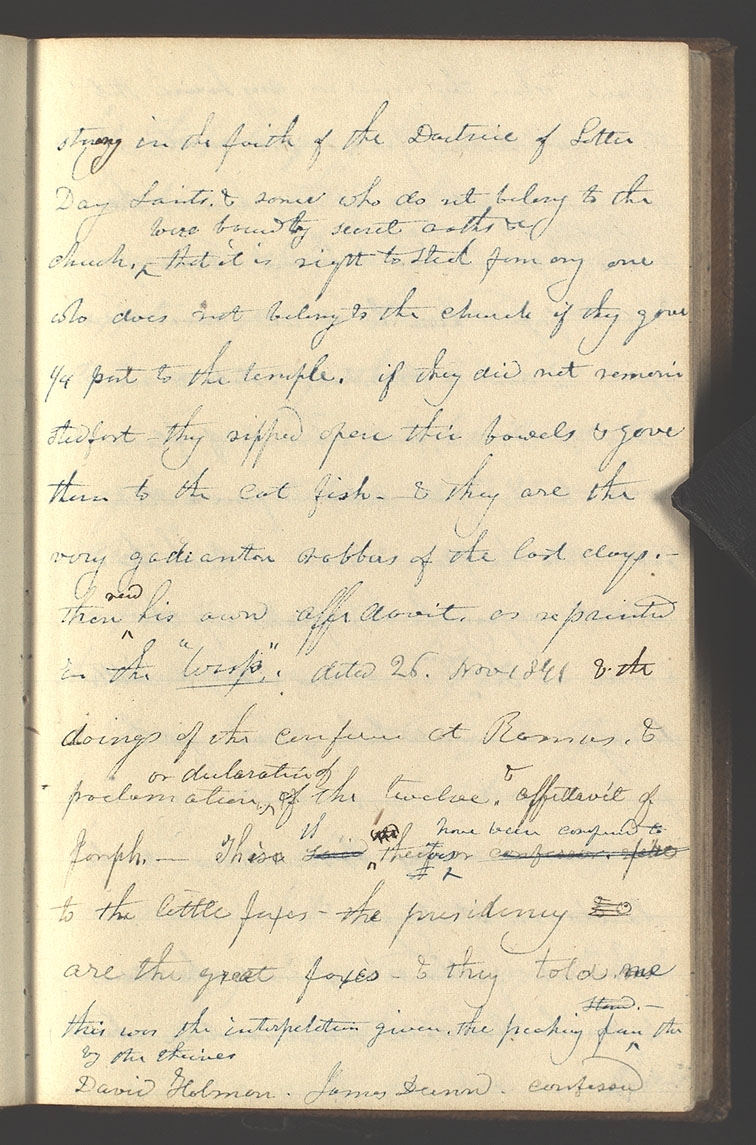 strong in the faith of the Doctrine of Latter
Day Saints. & some who do not belong to the
were bound by secret oaths &c
church. that it is right to steal from any one
who does not belong to the church if they gave
1/4 part to the temple. if they did not remain
stedfast – they ripped open their bowels & gave
them to the cat fish – & they are the
very gadianton robbers of the last days. –
read
then his own affidavit. as reprinted
in the "Wasp". dated 26. Nov 1841 & the
doings of the confernce at Ramus. &
or declaration of
proclamation of the twelve. & affidavit of
have been compared to
Joseph. – These
to the little foxes – the presidency
are the great foxes – & they told me
stand. –
this was the interpeltion given. the preaching from the
by the theives
David Holman. James Dunn. confessed